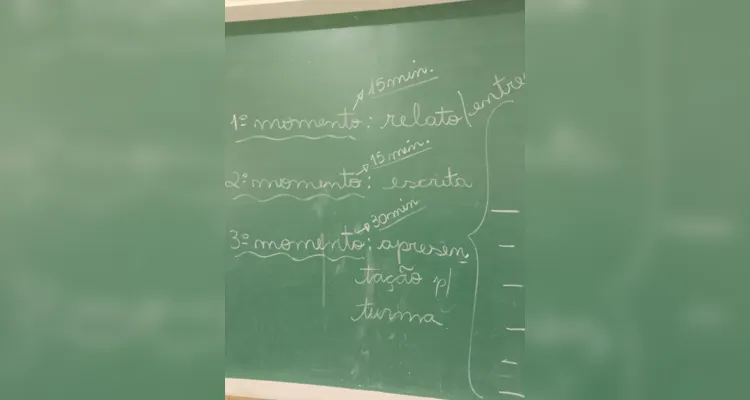 15min.
1º momento: relato/entre
15 min.
2º momento: escrita
30min
3º momento: apresen
tação p/
turma